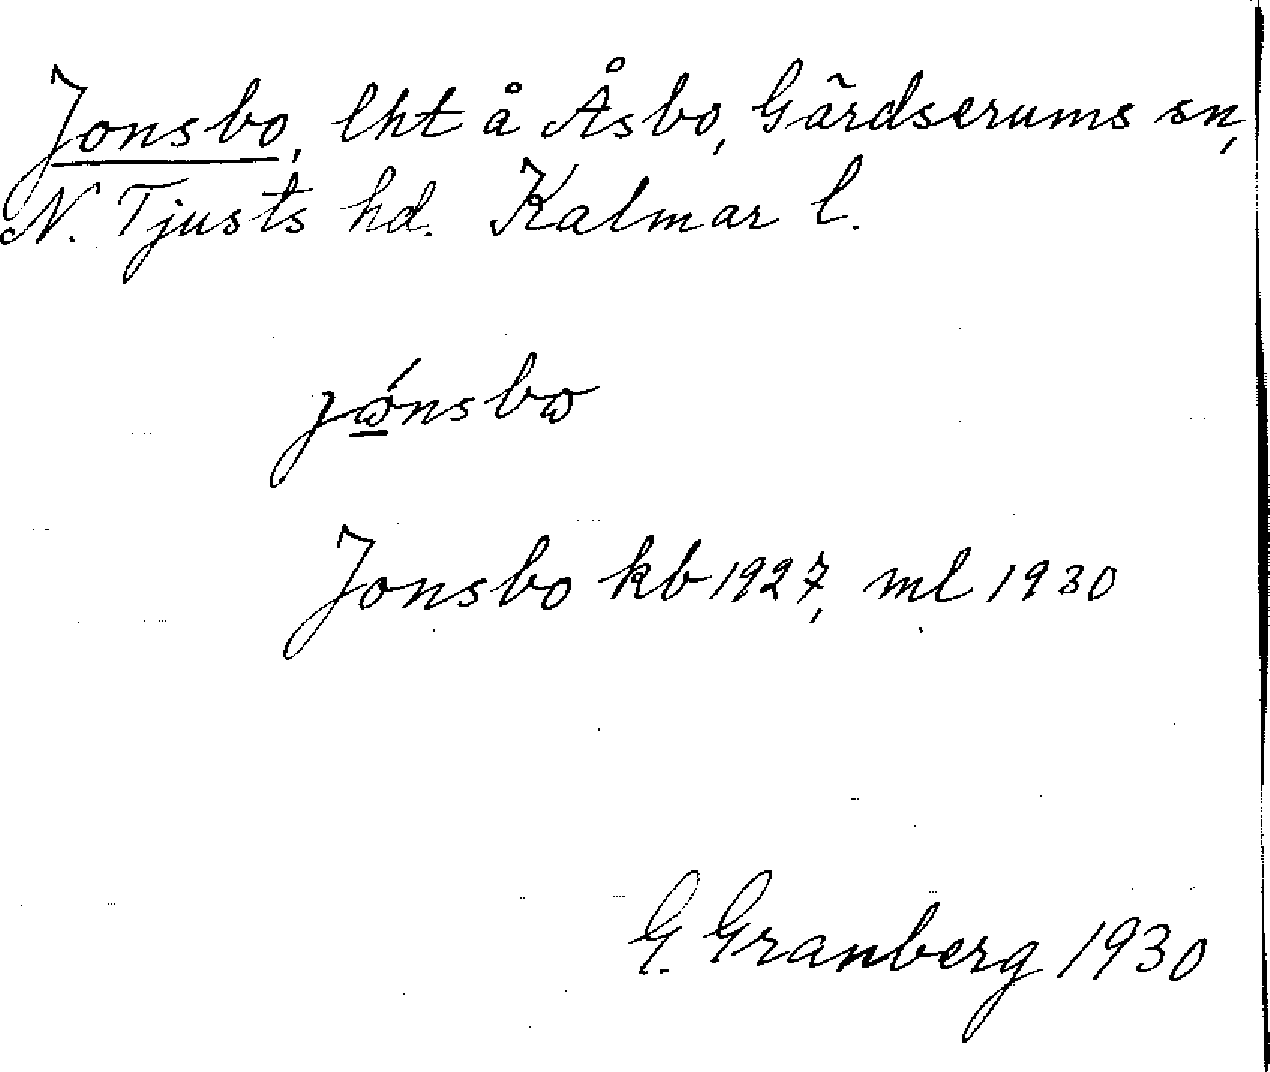 Jonsbo, lht å Åsbo, Gärdserums sn,
N. Tjusts hd. Kalmar l.
jώnsbω
Jonsbo kb 1927, ml 1930
G. Granberg 1930